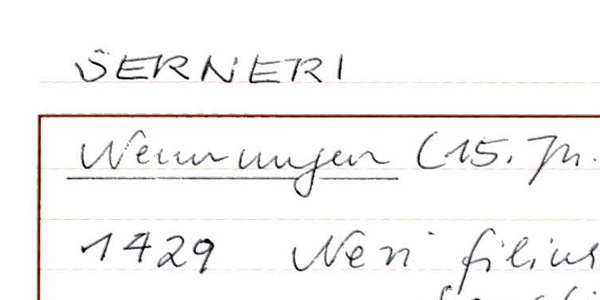 SERNERI
Nennungen (15. Jh.
1429 Neri filius